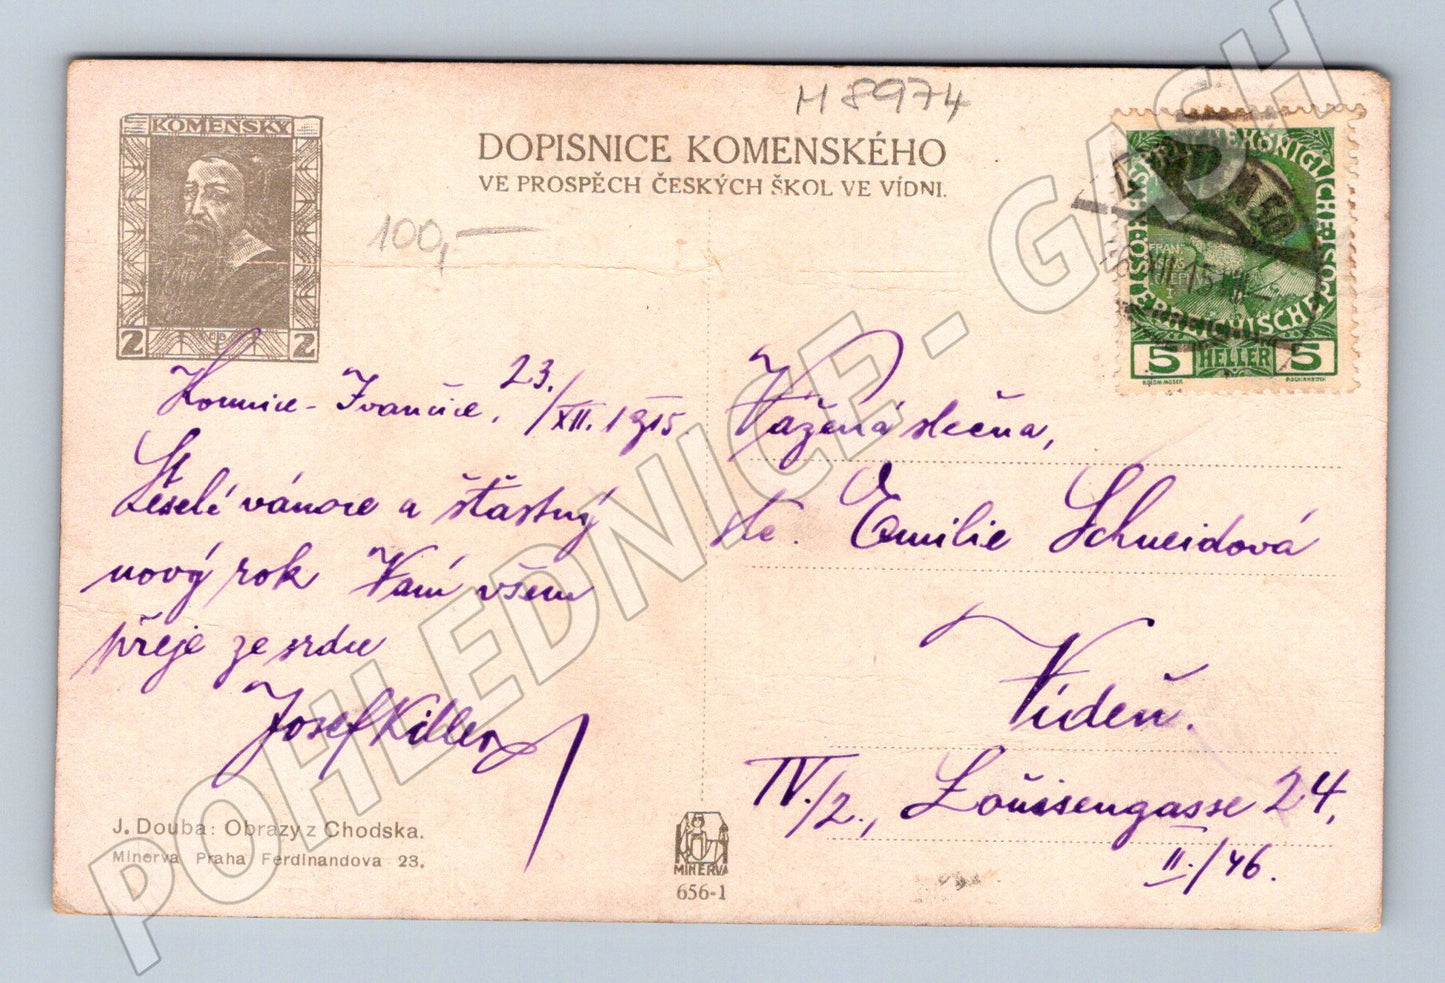 KOMENSKÝ
2 2
DOPISNICE KOMENSKÉHO
VE PROSPĚCH ČESKÝCH ŠKOL VE VÍDNI.
H 8974
100,-
FRANZ
5 HELLER 5
KOLOM. MOSER
Ivančice, 23./XII. 1915.
Veselé vánoce a šťastný
nový rok Vám všem
přeje ze srdce
Josef Killer
Vážená slečna,
slč. Emilie Schneidová
Vídeň.
IV./2., Louisengasse 24,
II./46.
J. Douba: Obrazy z Chodska.
Minerva Praha Ferdinandova 23.
MINERVA
656-1
POHLEDNICE - GASH